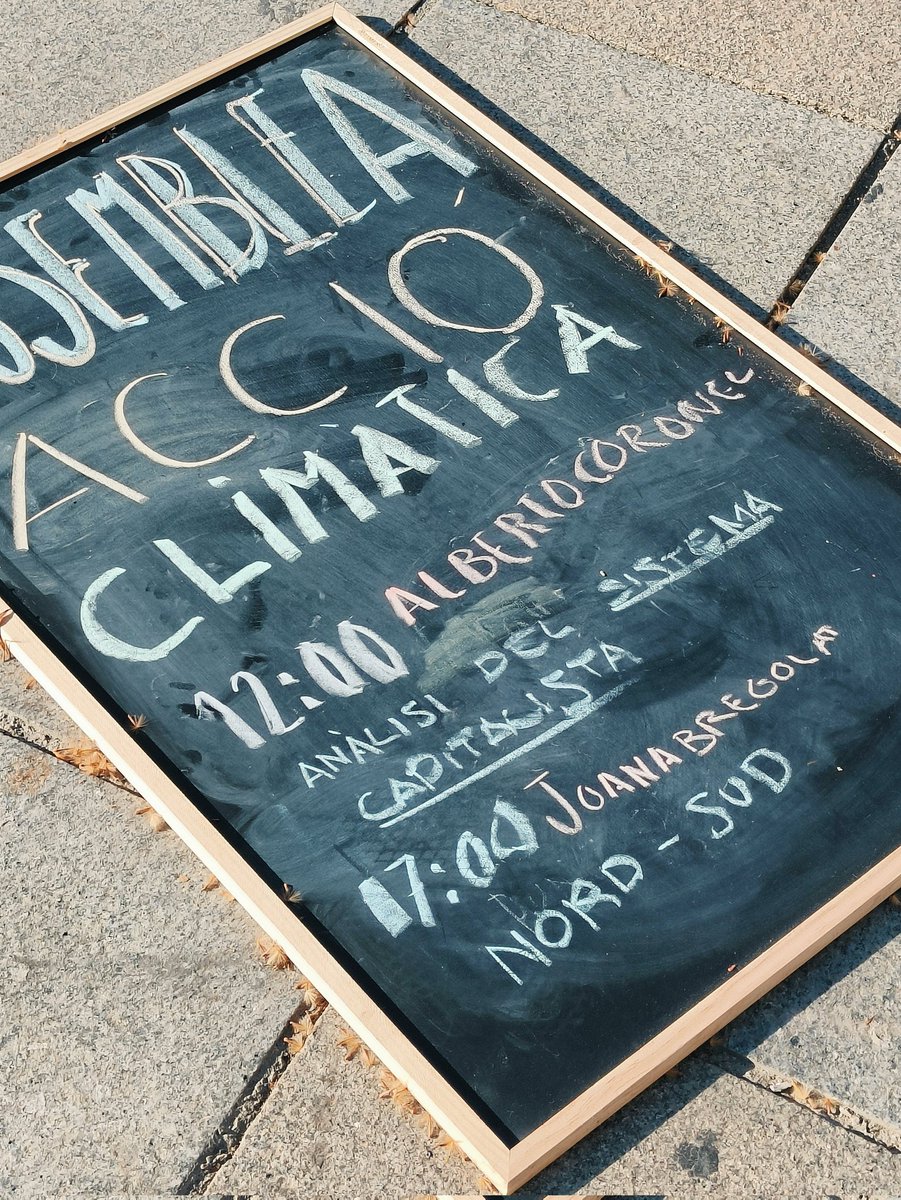 SSEMBLEA
ACCIÓ
CLIMÀTICA
12:00 ALBERTO CORONEL
ANÀLISI DEL SISTEMA
CAPITALISTA
17:00 JOANA BREGOLAT
NORD - SUD